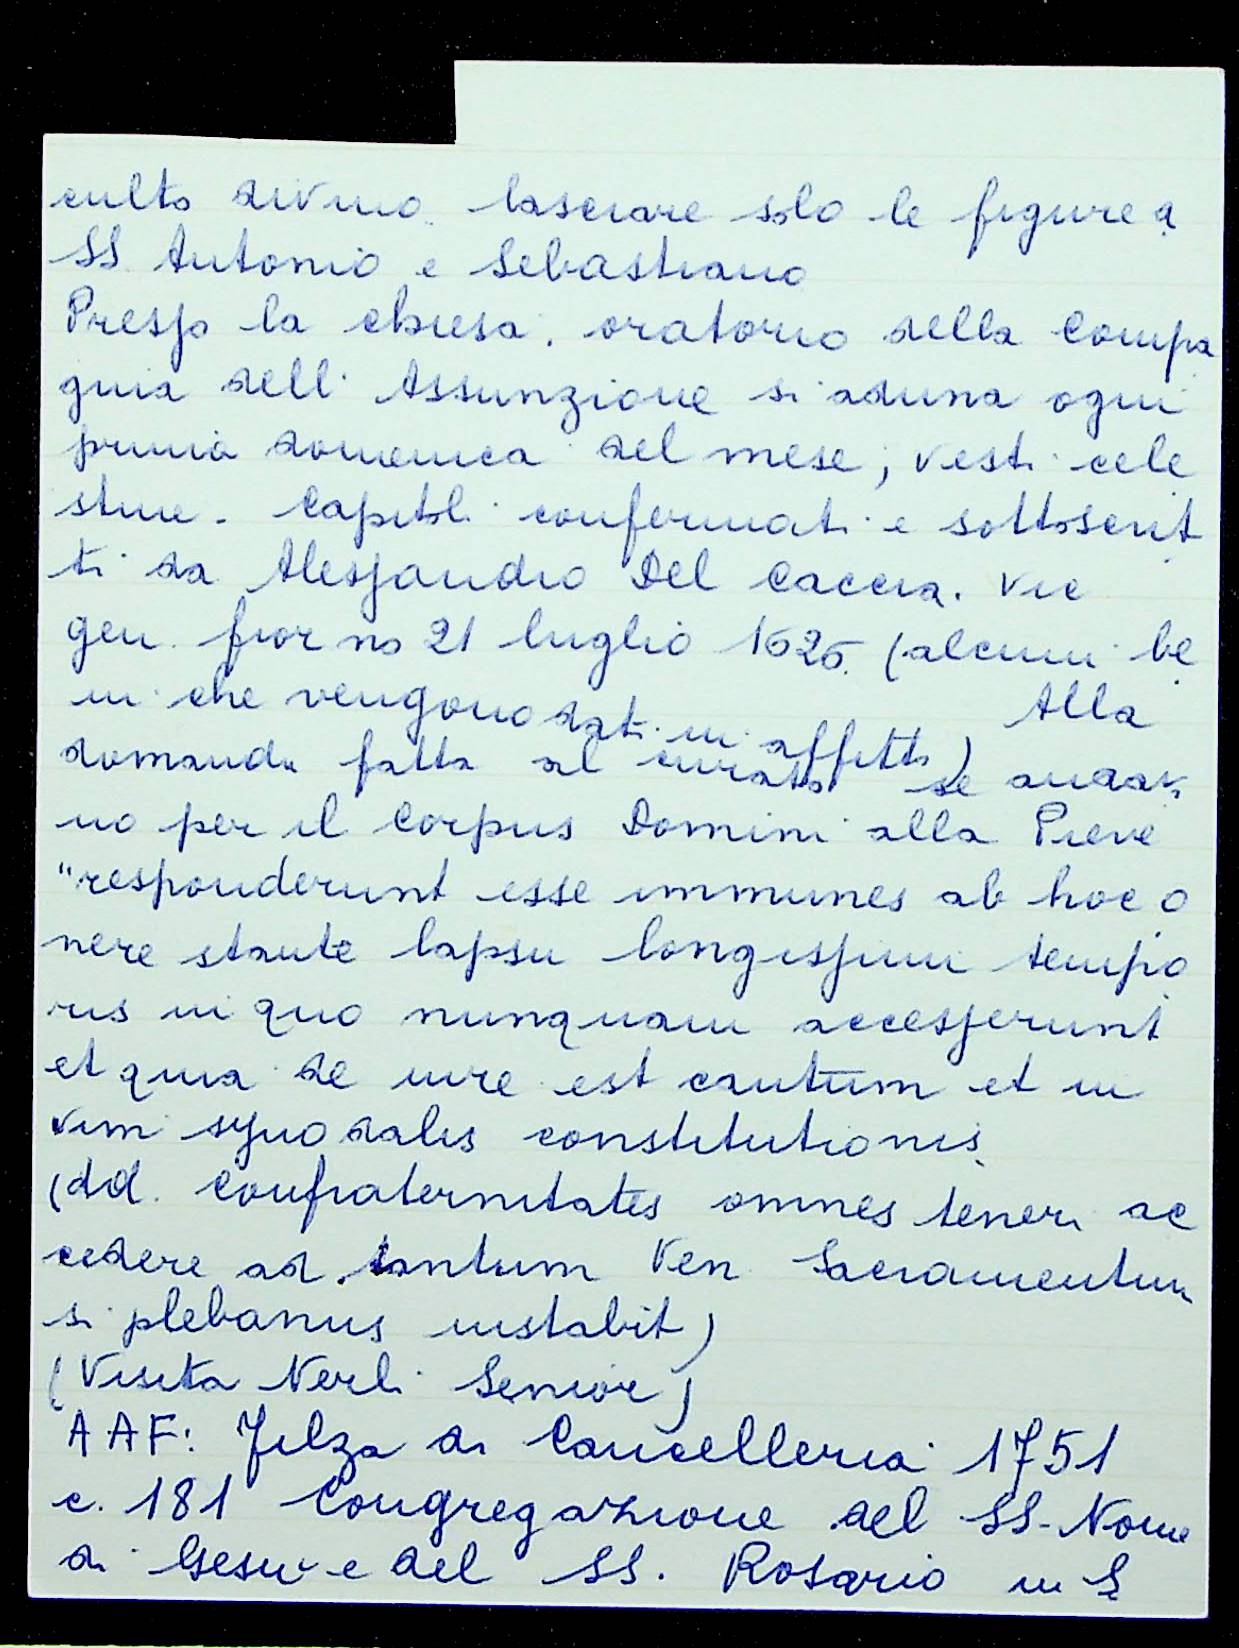 culto divino. lasciare solo le figure d
SS. Antonio e Sebastiano
Presso la chiesa. oratorio della Compa
gnia dell'Assunzione si aduna ogni
prima domenica del mese, vesti cele
stine. Capitoli confermati e sottoscrit
ti da Alessandro Del Caccia. Vic
gen. fior no 21 luglio 1625. (alcuni be
ni che vengono dati in affitto) Alla
domanda fatta al curato se andav
no per il Corpus Domini alla Pieve
"responderunt esse immunes ab hoc o
nere stante lapsu longissimi tempo
ris in quo nunquam accesserunt
et quia de iure est cautum et in
vim synodalis constitutionis
(dd. Confraternitates omnes teneri ac
cedere ad tantum Ven Sacramentum
si plebanus instabit)
(Visita Nerli Senior)
AAF: Filza di Cancelleria 1751
c. 181 Congregazione del SS. Nome
di Gesù e del SS. Rosario in S